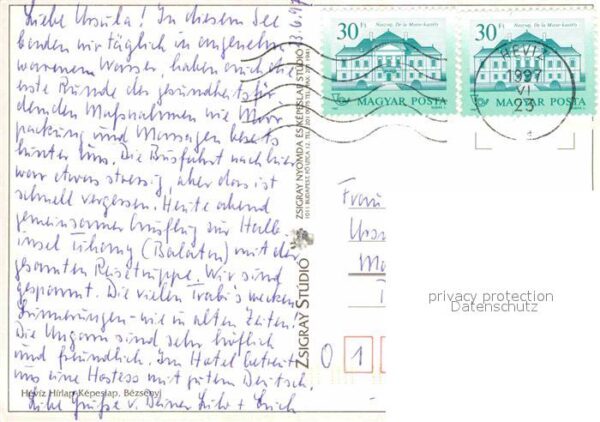 Liebe Ursula! In diesem See
baden wir täglich in angenehm
warmem Wasser, haben auch die
erste Runde der gesundheitsför
dernden Maßnahmen wie Moor
packung und Massagen bereits
hinter uns. Die Busfahrt nach hier
war etwas stressig, aber das ist
schnell vergessen. Heute abend
gemeinsamer Ausflug zur Halb
insel Tihany (Balaton) mit der
gesamten Reisegruppe. Wir sind
gespannt. Die vielen Trabi's wecken
Erinnerungen - wie in alten Zeiten.
Die Ungarn sind sehr höflich
und freundlich. Im Hotel betreut
uns eine Hostess mit gutem Deutsch.
Liebe Grüße v. Deiner + Erich
Hévíz Hírlap-Képeslap, Bézsenyi
23.6.97
ZSIGRAY STÚDIÓ
ZSIGRAY NYOMDA ÉS KÉPESLAP STÚDIÓ
30 Ft
Nagycenk. De la Motte-kastély
MAGYAR POSTA
30 Ft
Nagycenk. De la Motte-kastély
MAGYAR POSTA
HÉVÍZ
1997
VI
23
Frau
Urs
0 1
privacy protection
Datenschutz